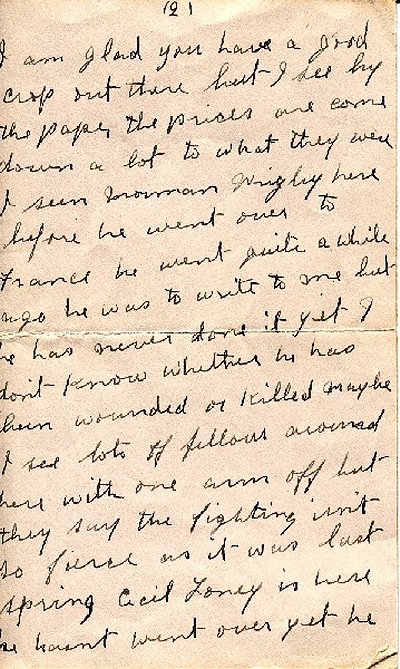 (2)
I am glad you have a good
crop out there but I see by
the paper the prices are come
down a lot to what they were
I seen Norman Wrigley here
before he went over to
France he went quite a while
ago he was to write to me but
he has never done it yet I
dont know whether he has
been wounded or killed maybe
I see lots of fellows around
here with one arm off but
they say the fighting isn't
so fierce as it was last
spring Cecil Loney is here
he hasnt went over yet he